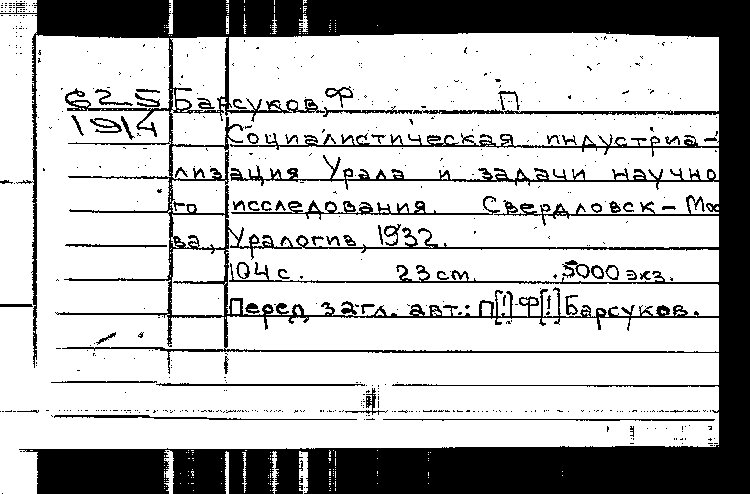 625 Барсуков, Ф П
1914 Социалистическая индустриа-
лизация Урала и задачи научно
го исследования. Свердловск-Мос
ва, Уралогиз, 1932.
104 с. 23 cm. 5000 экз.
Перед загл. авт.: П[!] Ф[!] Барсуков.